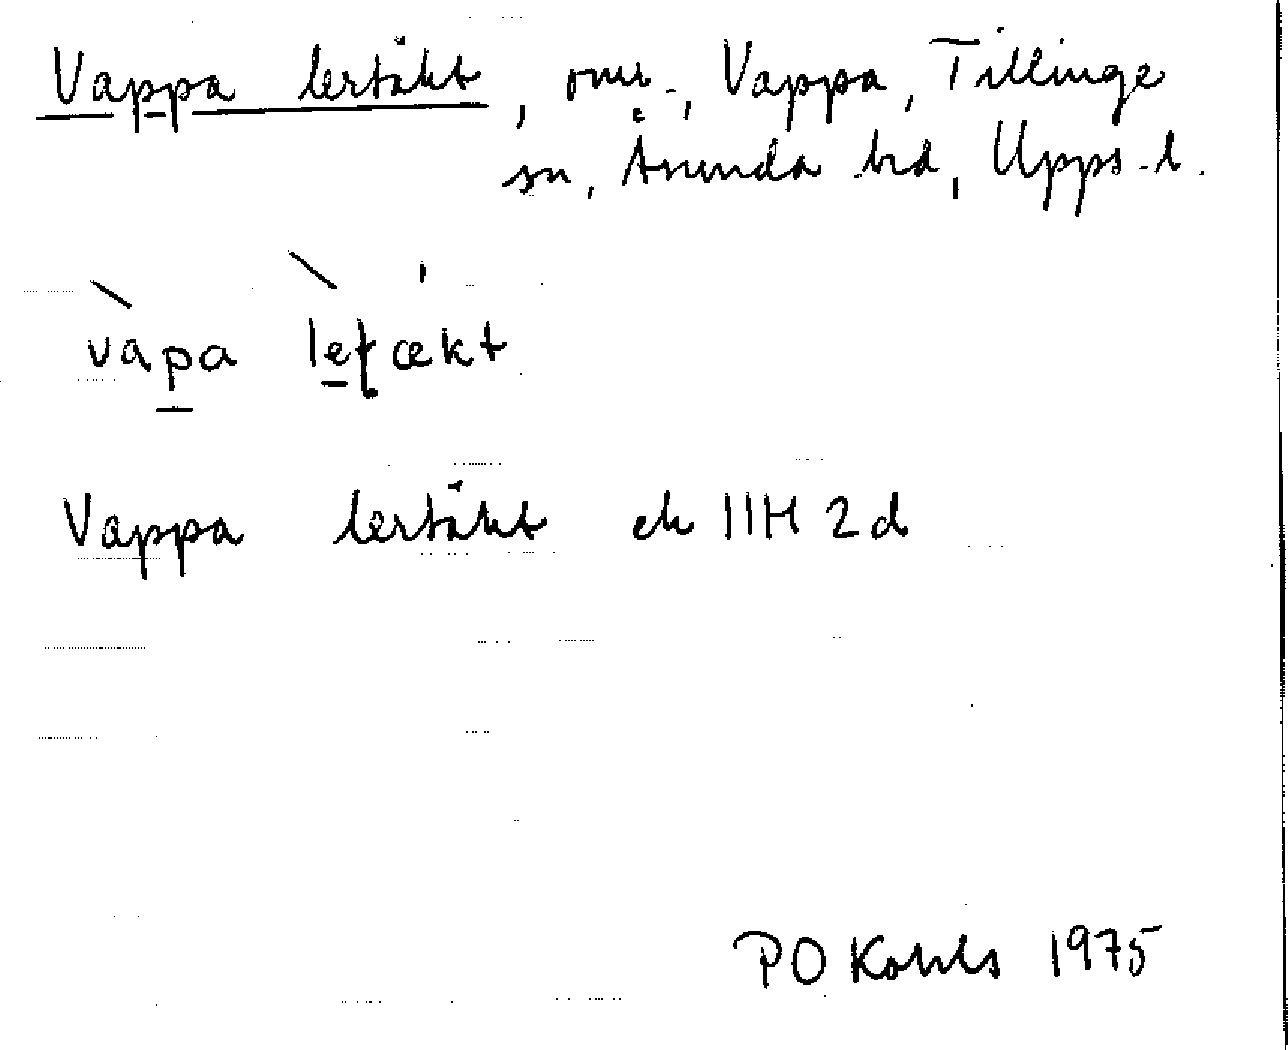 Vappa lertäkt, omr., Vappa, Tillinge
sn, Åsunda hd, Upps. l.
vapa leṭækt
Vappa lertäkt ek 11H 2d
PO Kohls 1975